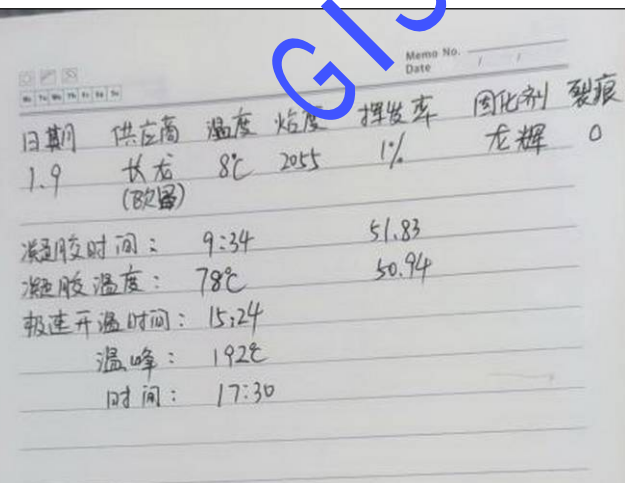 GIS
Memo No.
Date / /
Mo Tu We Th Fr Sa Su
日期 供应商 温度 粘度 挥发率 固化剂 裂痕
1.9 长龙 8℃ 2055 1% 龙辉 0
凝胶时间: 9:34 51.83
凝胶温度: 78℃ 50.94
极速开温时间: 15:24
温峰: 192℃
时间: 17:30